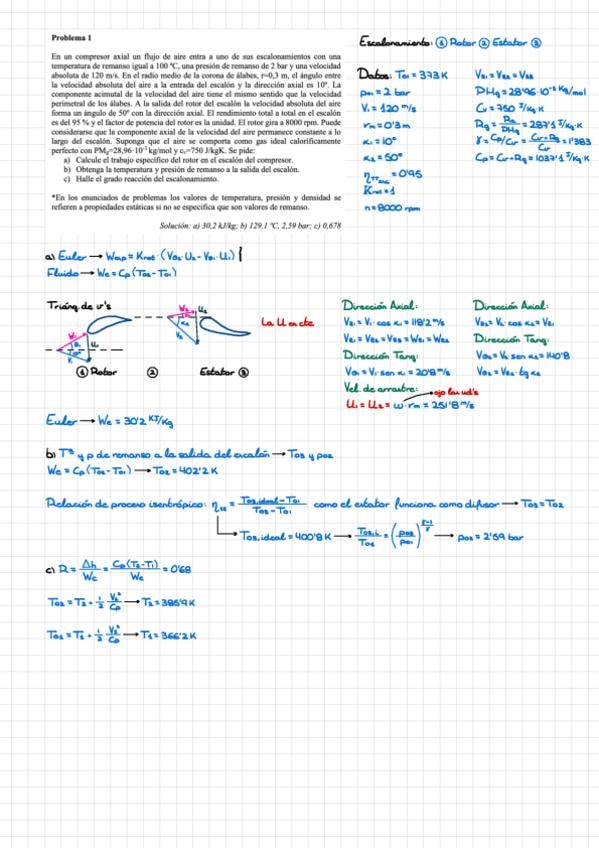 Problema 1
Escalonamiento: ① Rotor ② Estator ③
En un compresor axial un flujo de aire entra a uno de sus escalonamientos con una
temperatura de remanso igual a 100 ºC, una presión de remanso de 2 bar y una velocidad
absoluta de 120 m/s. En el radio medio de la corona de álabes, r=0,3 m, el ángulo entre
la velocidad absoluta del aire a la entrada del escalón y la dirección axial es 10º. La
componente acimutal de la velocidad del aire tiene el mismo sentido que la velocidad
perimetral de los álabes. A la salida del rotor del escalón la velocidad absoluta del aire
forma un ángulo de 50º con la dirección axial. El rendimiento total a total en el escalón
es del 95 % y el factor de potencia del rotor es la unidad. El rotor gira a 8000 rpm. Puede
considerarse que la componente axial de la velocidad del aire permanece constante a lo
largo del escalón. Suponga que el aire se comporta como gas ideal caloríficamente
perfecto con PMg=28,96·10⁻³ kg/mol y cv=750 J/kgK. Se pide:
a) Calcule el trabajo específico del rotor en el escalón del compresor.
b) Obtenga la temperatura y presión de remanso a la salida del escalón.
c) Halle el grado reacción del escalonamiento.
*En los enunciados de problemas los valores de temperatura, presión y densidad se
refieren a propiedades estáticas si no se especifica que son valores de remanso.
Solución: a) 30,2 kJ/kg; b) 129,1 ºC, 2,59 bar; c) 0,678
Datos: T01 = 373 K
p01 = 2 bar
V1 = 120 m/s
rm = 0'3 m
α1 = 10º
α2 = 50º
ηTTesc = 0'95
Krot = 1
n = 8000 rpm
Va1 = Va2 = Va3
PMg = 28'96·10⁻³ Kg/mol
Cv = 750 J/Kg·K
Rg = Ru/PMg = 287'1 J/Kg·K
γ = Cp/Cv = (Cv+Rg)/Cv = 1'383
Cp = Cv+Rg = 1037'1 J/Kg·K
a) Euler → Wesp = Krot·(Vθ2·U2 - Vθ1·U1) {
Fluido → Wc = Cp(T02 - T01)
Triáng de v's
W1 V1 U1 β1 10º
W2 U2 α2 V2
① Rotor ② Estator ③
La U es cte
Dirección Axial:
Va1 = V1·cos α1 = 118'2 m/s
Va1 = Va2 = Va3 = Wa1 = Wa2
Dirección Tang:
Vθ1 = V1·sen α1 = 20'8 m/s
Vel. de arrastre: ojo las ud's
U1 = U2 = ω·rm = 251'8 m/s
Dirección Axial:
Va2 = V2·cos α2 = Va1
Dirección Tang:
Vθ2 = V2·sen α2 = 140'8
Vθ2 = Va2·tg α2
Euler → Wc = 30'2 KJ/Kg
b) Tª y p de remanso a la salida del escalón → T03 y p03
Wc = Cp(T02 - T01) → T02 = 402'2 K
Relación de proceso isentrópico: ηtt = (T03,ideal - T01)/(T03 - T01) como el estator funciona como difusor → T03 = T02
T03,ideal = 400'8 K → T03,i/T01 = (p03/p01)^((γ-1)/γ) → p03 = 2'59 bar
c) R = Δh/Wc = Cp(T2 - T1)/Wc = 0'68
T02 = T2 + ½ V2²/Cp → T2 = 385'9 K
T01 = T1 + ½ V1²/Cp → T1 = 366'2 K